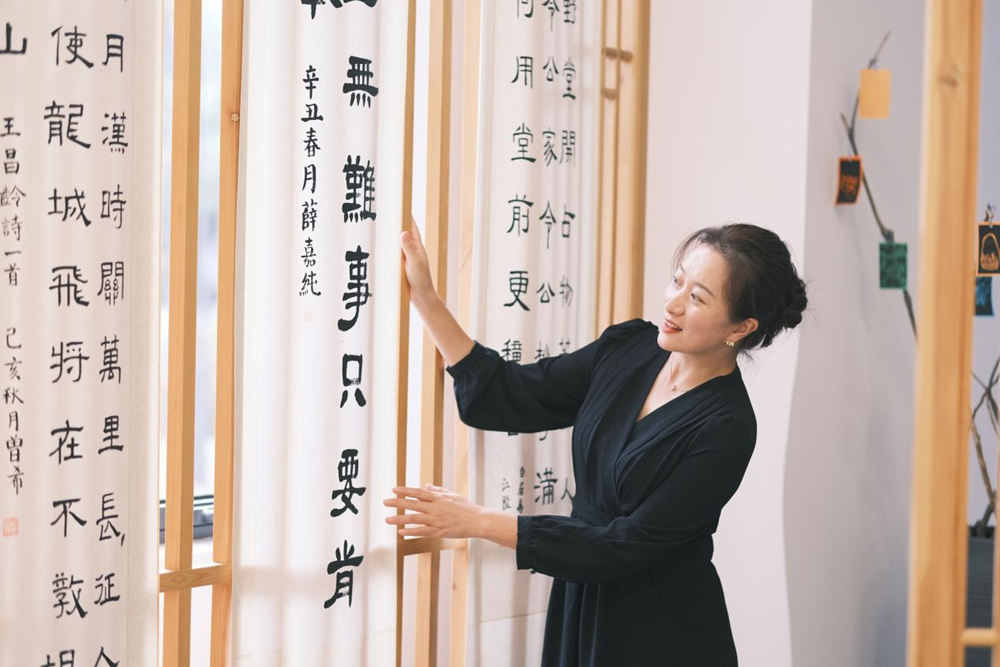 野堂開占物
令公家令公
滿
何用堂前更種
無難事只要肯
辛丑春月薛嘉純
月漢時關萬里長征
使龍城飛將在不教
山
王昌齡詩一首 己亥秋月曾